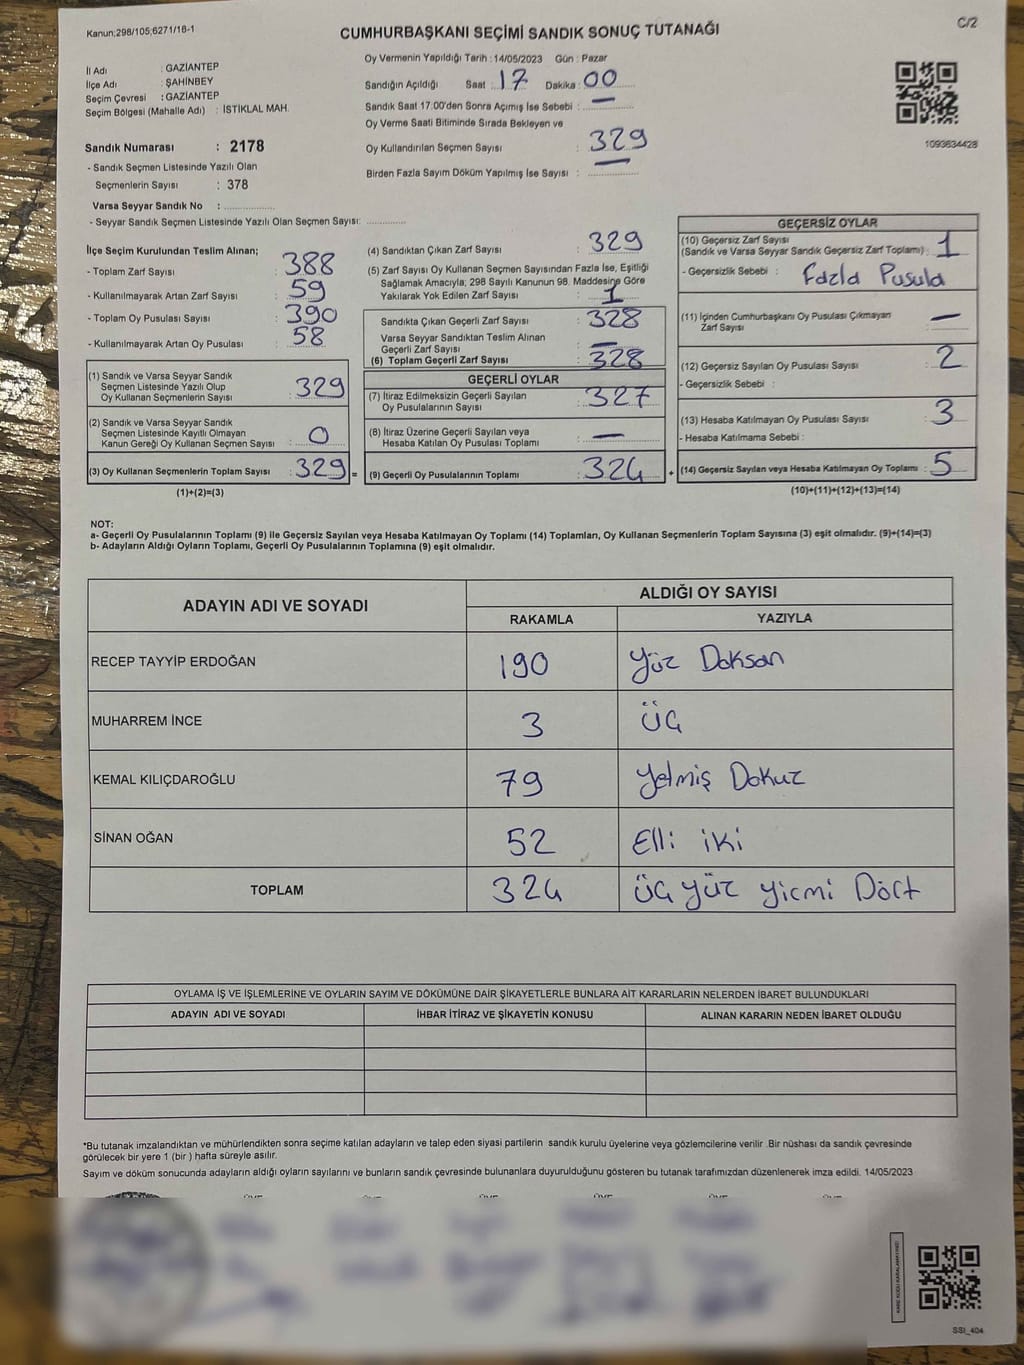 Kanun;298/105;6271/18-1
CUMHURBAŞKANI SEÇİMİ SANDIK SONUÇ TUTANAĞI
C/2
İl Adı : GAZİANTEP
İlçe Adı : ŞAHİNBEY
Seçim Çevresi : GAZİANTEP
Seçim Bölgesi (Mahalle Adı) : İSTİKLAL MAH.
Sandık Numarası : 2178
- Sandık Seçmen Listesinde Yazılı Olan
Seçmenlerin Sayısı : 378
Varsa Seyyar Sandık No :
- Seyyar Sandık Seçmen Listesinde Yazılı Olan Seçmen Sayısı:
Oy Vermenin Yapıldığı Tarih : 14/05/2023 Gün : Pazar
Sandığın Açıldığı Saat : 17 Dakika : 00
Sandık Saat 17:00'den Sonra Açımış İse Sebebi : —
Oy Verme Saati Bitiminde Sırada Bekleyen ve
Oy Kullandırılan Seçmen Sayısı : 329
Birden Fazla Sayım Döküm Yapılmış İse Sayısı : —
1093634428
İlçe Seçim Kurulundan Teslim Alınan;
- Toplam Zarf Sayısı : 388
- Kullanılmayarak Artan Zarf Sayısı : 59
- Toplam Oy Pusulası Sayısı : 390
- Kullanılmayarak Artan Oy Pusulası : 58
(1) Sandık ve Varsa Seyyar Sandık
Seçmen Listesinde Yazılı Olup
Oy Kullanan Seçmenlerin Sayısı : 329
(2) Sandık ve Varsa Seyyar Sandık
Seçmen Listesinde Kayıtlı Olmayan
Kanun Gereği Oy Kullanan Seçmen Sayısı : 0
(3) Oy Kullanan Seçmenlerin Toplam Sayısı : 329 =
(1)+(2)=(3)
(4) Sandıktan Çıkan Zarf Sayısı : 329
(5) Zarf Sayısı Oy Kullanan Seçmen Sayısından Fazla İse, Eşitliği
Sağlamak Amacıyla; 298 Sayılı Kanunun 98. Maddesine Göre
Yakılarak Yok Edilen Zarf Sayısı : 1
Sandıkta Çıkan Geçerli Zarf Sayısı : 328
Varsa Seyyar Sandıktan Teslim Alınan
Geçerli Zarf Sayısı : —
(6) Toplam Geçerli Zarf Sayısı : 328
GEÇERLİ OYLAR
(7) İtiraz Edilmeksizin Geçerli Sayılan
Oy Pusulalarının Sayısı : 327
(8) İtiraz Üzerine Geçerli Sayılan veya
Hesaba Katılan Oy Pusulası Toplamı : —
(9) Geçerli Oy Pusulalarının Toplamı : 324 +
GEÇERSİZ OYLAR
(10) Geçersiz Zarf Sayısı
(Sandık ve Varsa Seyyar Sandık Geçersiz Zarf Toplamı) : 1
- Geçersizlik Sebebi : Fazla Pusula
(11) İçinden Cumhurbaşkanı Oy Pusulası Çıkmayan
Zarf Sayısı : —
(12) Geçersiz Sayılan Oy Pusulası Sayısı : 2
- Geçersizlik Sebebi :
(13) Hesaba Katılmayan Oy Pusulası Sayısı : 3
- Hesaba Katılmama Sebebi :
(14) Geçersiz Sayılan veya Hesaba Katılmayan Oy Toplamı : 5
(10)+(11)+(12)+(13)=(14)
NOT:
a- Geçerli Oy Pusulalarının Toplamı (9) ile Geçersiz Sayılan veya Hesaba Katılmayan Oy Toplamı (14) Toplamları, Oy Kullanan Seçmenlerin Toplam Sayısına (3) eşit olmalıdır. (9)+(14)=(3)
b- Adayların Aldığı Oyların Toplamı, Geçerli Oy Pusulalarının Toplamına (9) eşit olmalıdır.
ADAYIN ADI VE SOYADI
ALDIĞI OY SAYISI
RAKAMLA YAZIYLA
RECEP TAYYİP ERDOĞAN 190 Yüz Doksan
MUHARREM İNCE 3 ÜÇ
KEMAL KILIÇDAROĞLU 79 Yetmiş Dokuz
SİNAN OĞAN 52 Elli iki
TOPLAM 324 ÜÇ yüz yirmi Dört
OYLAMA İŞ VE İŞLEMLERİNE VE OYLARIN SAYIM VE DÖKÜMÜNE DAİR ŞİKAYETLERLE BUNLARA AİT KARARLARIN NELERDEN İBARET BULUNDUKLARI
ADAYIN ADI VE SOYADI İHBAR İTİRAZ VE ŞİKAYETİN KONUSU ALINAN KARARIN NEDEN İBARET OLDUĞU
*Bu tutanak imzalandıktan ve mühürlendikten sonra seçime katılan adayların ve talep eden siyasi partilerin sandık kurulu üyelerine veya gözlemcilerine verilir .Bir nüshası da sandık çevresinde
görülecek bir yere 1 (bir ) hafta süreyle asılır.
Sayım ve döküm sonucunda adayların aldığı oyların sayılarını ve bunların sandık çevresinde bulunanlara duyurulduğunu gösteren bu tutanak tarafımızdan düzenlenerek imza edildi. 14/05/2023
SSI_404